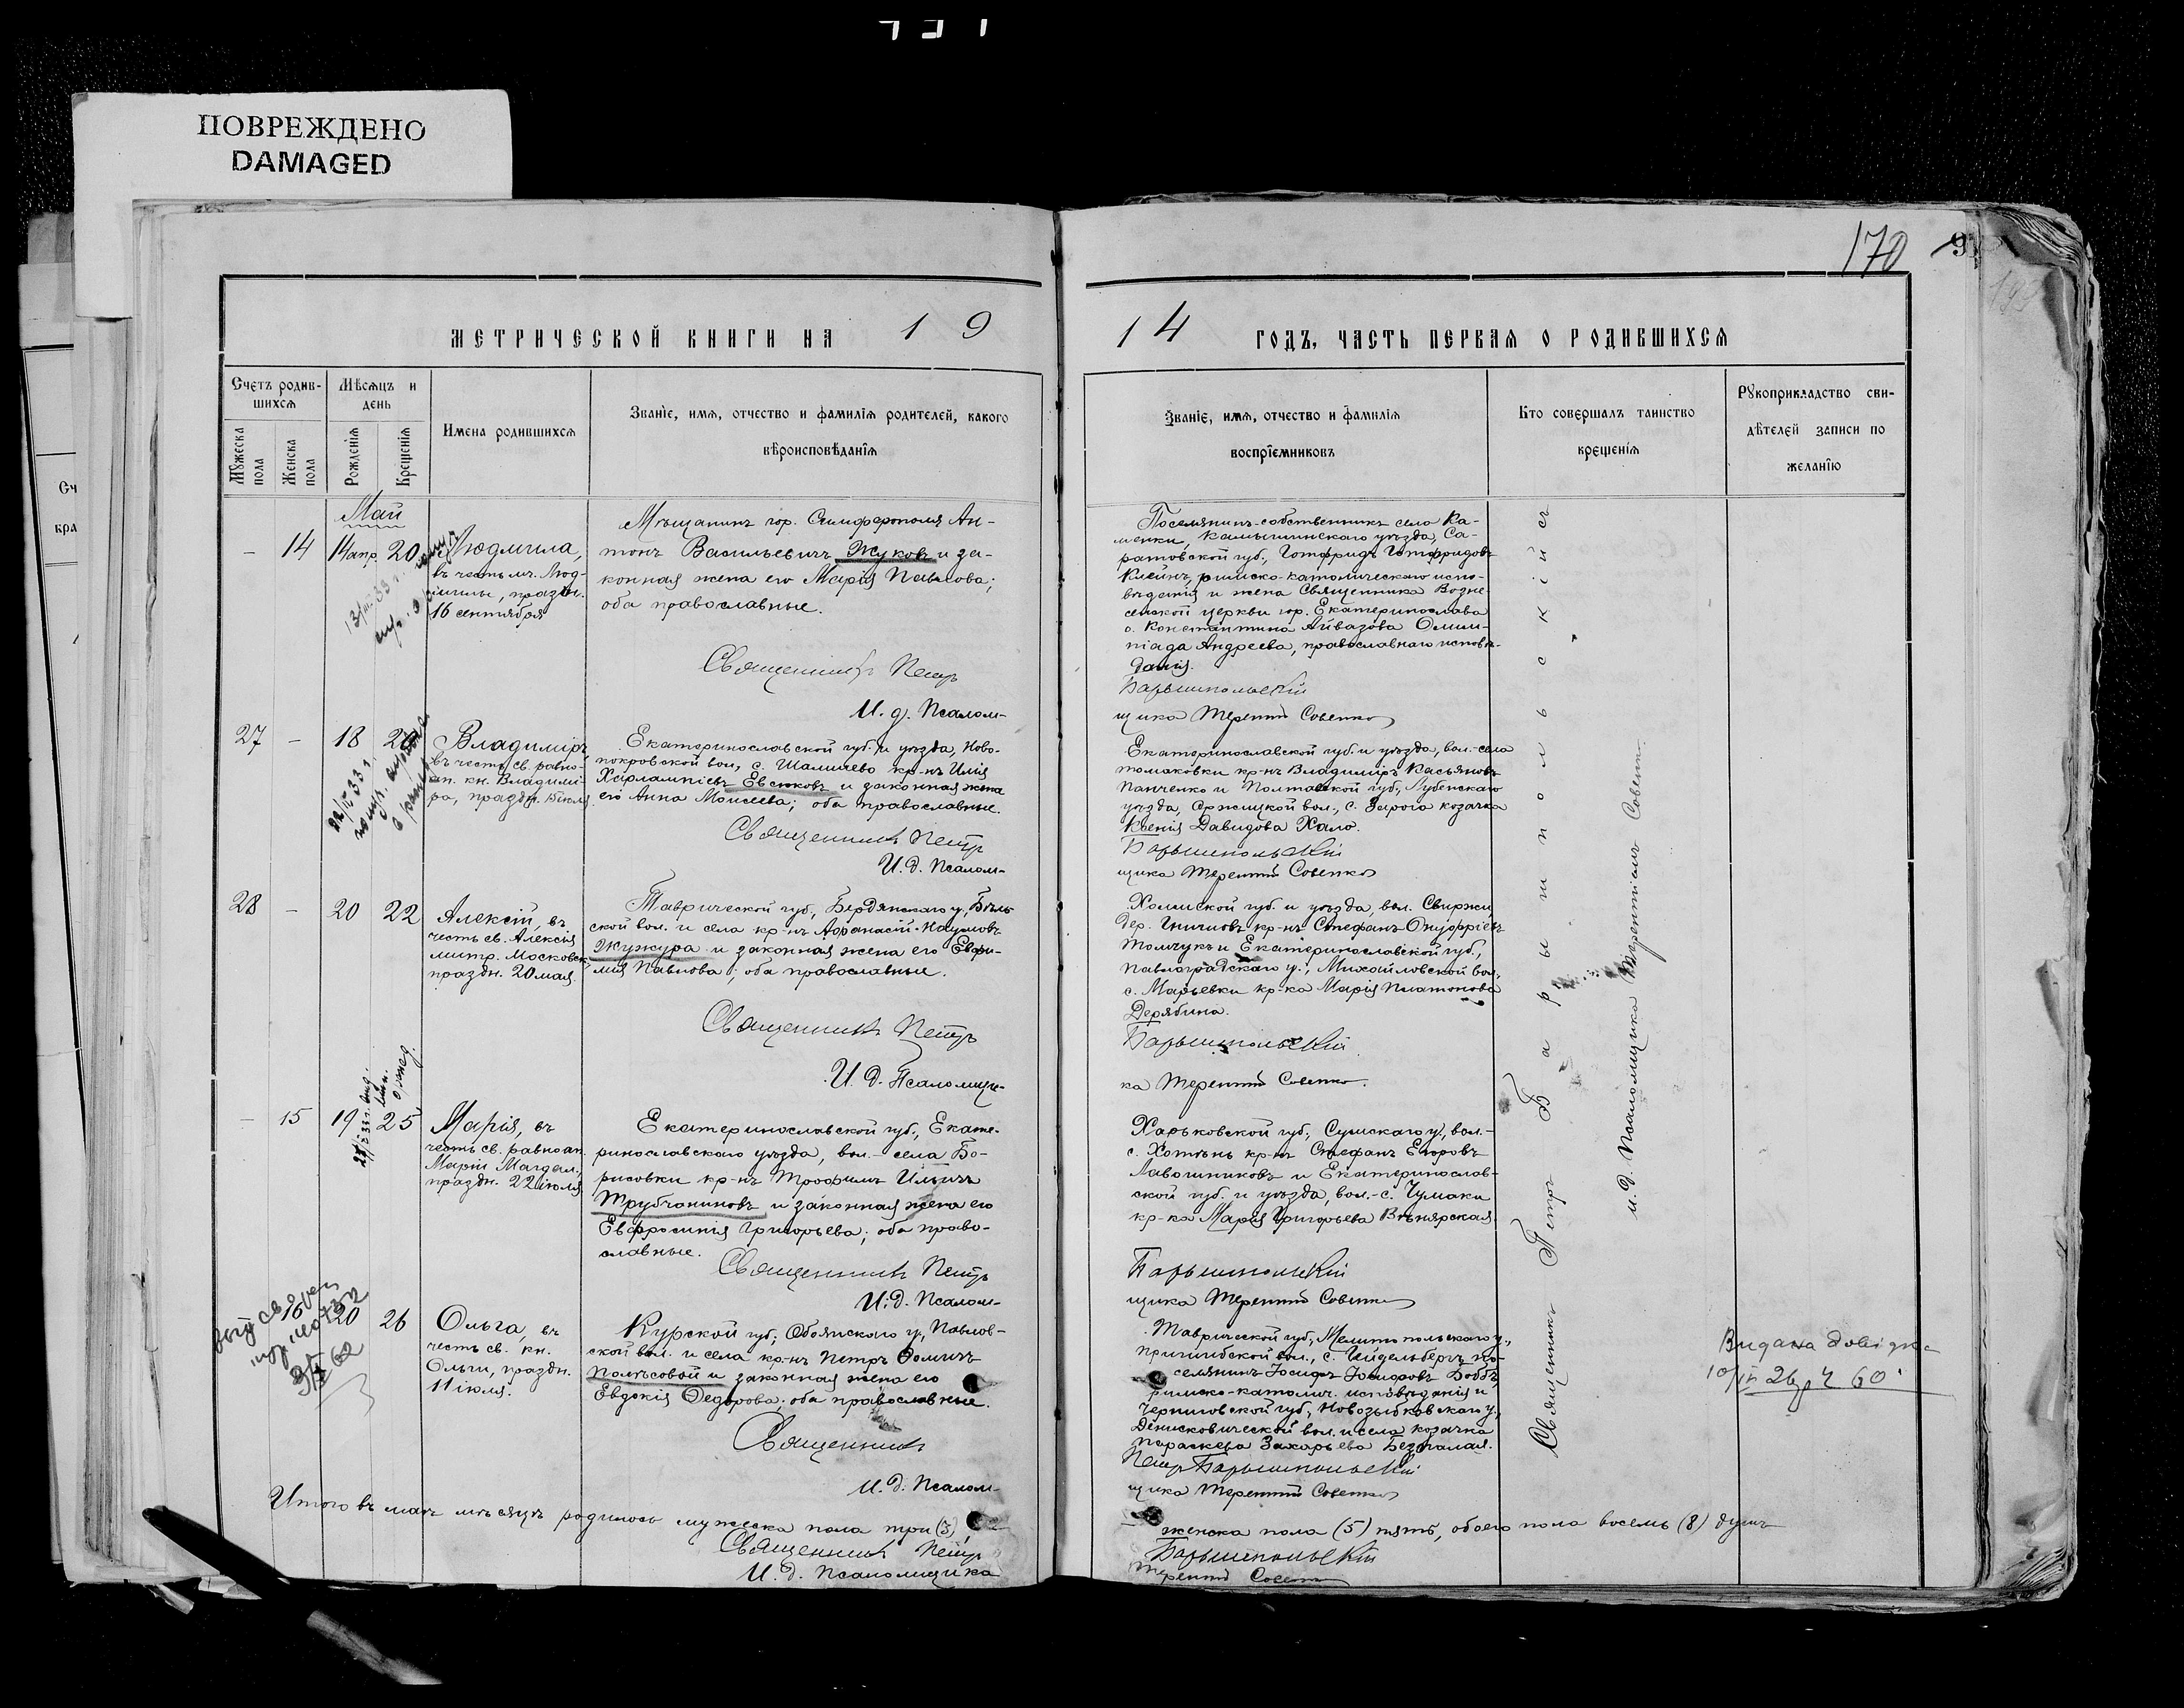 ПОВРЕЖДЕНО
DAMAGED
170
МЕТРИЧЕСКОЙ КНИГИ НА 19
14 ГОДЪ, ЧАСТЬ ПЕРВАЯ О РОДИВШИХСЯ
Счетъ родив-
шихся
Мужеска
пола
Женска
пола
Мѣсяцъ и
день
Рожденія
Крещенія
Имена родившихся
Званіе, имя, отчество и фамилія родителей, какого
вѣроисповѣданія
Званіе, имя, отчество и фамилія
воспріемниковъ
Кто совершалъ таинство
крещенія
Рукоприкладство сви-
дѣтелей записи по
желанію
Май
– 14 14 апр. 20
Людмила,
въ честь мч. Люд-
милы, праздн.
16 сентября
Мѣщанинъ гор. Симферополя Ан-
тонъ Васильевичъ Жуковъ и за-
конная жена его Марія Павлова;
оба православные.
Поселянинъ-собственникъ села Ка-
менки, Камышинскаго уѣзда, Са-
ратовской губ., Готфридъ Готфридовъ
Клейнъ, римско-католическаго испо-
вѣданія и жена Священника Возне-
сенской церкви гор. Екатеринослава
о. Константина Айвазова Олим-
піада Андреева, православнаго исповѣ-
данія.
Священникъ Петръ
Барышпольскій
И. д. Псалом-
щика Терентій Совенко
27 – 18 20
Владиміръ,
въ честь св. равно-
ап. кн. Владимі-
ра, праздн. 15 іюля
Екатеринославской губ. и уѣзда, Ново-
покровской вол., с. Шалиево кр-нъ Илія
Харлампіевъ Евсюковъ и законная жена
его Анна Моисеева; оба православные.
Екатеринославской губ. и уѣзда, вол.-села
Томаковки кр-нъ Владиміръ Касьяновъ
Панченко и Полтавской губ., Лубенскаго
уѣзда, Оржицкой вол., с. Загрога козачка
Ксенія Давидова Хало.
Священникъ Петръ
Барышпольскій
И. д. Псалом-
щика Терентій Совенко
28 – 20 22
Алексій, въ
честь св. Алексія
митр. Московск.,
праздн. 20 мая.
Таврической губ., Бердянскаго у., Бѣль-
ской вол. и села кр-нъ Афанасій Наумовъ
Жужура и законная жена его Евфи-
мія Павлова; оба православные.
Холмской губ. и уѣзда, вол. Свиржи,
кр-нъ Стефанъ Онуфріевъ
Томчукъ и Екатеринославской губ.,
Павлоградскаго у., Михайловской вол.,
с. Марьевки кр-ка Марія Платонова
Дерябина.
Священникъ Петръ
Барышпольскій
И. д. Псаломщи-
ка Терентій Совенко.
– 15 19 25
Марія, въ
честь св. равноап.
Маріи Магдал.,
праздн. 22 іюля
Екатеринославской губ., Екате-
ринославскаго уѣзда, вол.-села Бо-
рисовки кр-нъ Трофимъ Ильичъ
Трубчаниновъ и законная жена его
Евфросинія Григорьева; оба право-
славные.
Харьковской губ., Сумскаго у., вол.-
с. Хотѣнь кр-нъ Стефанъ Егоровъ
Лавошниковъ и Екатеринослав-
ской губ. и уѣзда, вол.-с. Чумаки
кр-ка Марія Григорьева Вѣнярская.
Священникъ Петръ
Барышпольскій
И. д. Псалом-
щика Терентій Совенко
16 20 26
Ольга, въ
честь св. кн.
Ольги, праздн.
11 іюля.
Курской губ., Обоянскаго у., Павлов-
ской вол. и села кр-нъ Петръ Фомичъ
Полѣсовой и законная жена его
Евдокія Федорова; оба православные.
Таврической губ., Мелитопольскаго у.,
Пришибской вол., с. Гейдельбергъ по-
селянинъ Іосифъ Іосифовъ Боббъ
римско-католич. исповѣданія и
Черниговской губ., Новозыбковскаго у.,
Денисковической вол. и села козачка
Параскева Захарьева Безпалая.
Священникъ
Петръ Барышпольскій
И. д. Псалом-
щика Терентій Совенко
Священникъ Петръ Барышпольскій
и. д. Псаломщика Терентій Совенко
Видана довідка
Итого въ маѣ мѣсяцѣ родилось мужеска пола три (3),
женска пола (5) пять, обоего пола восемь (8) душъ
Священникъ Петръ
Барышпольскій
И. д. Псаломщика
Терентій Совенко